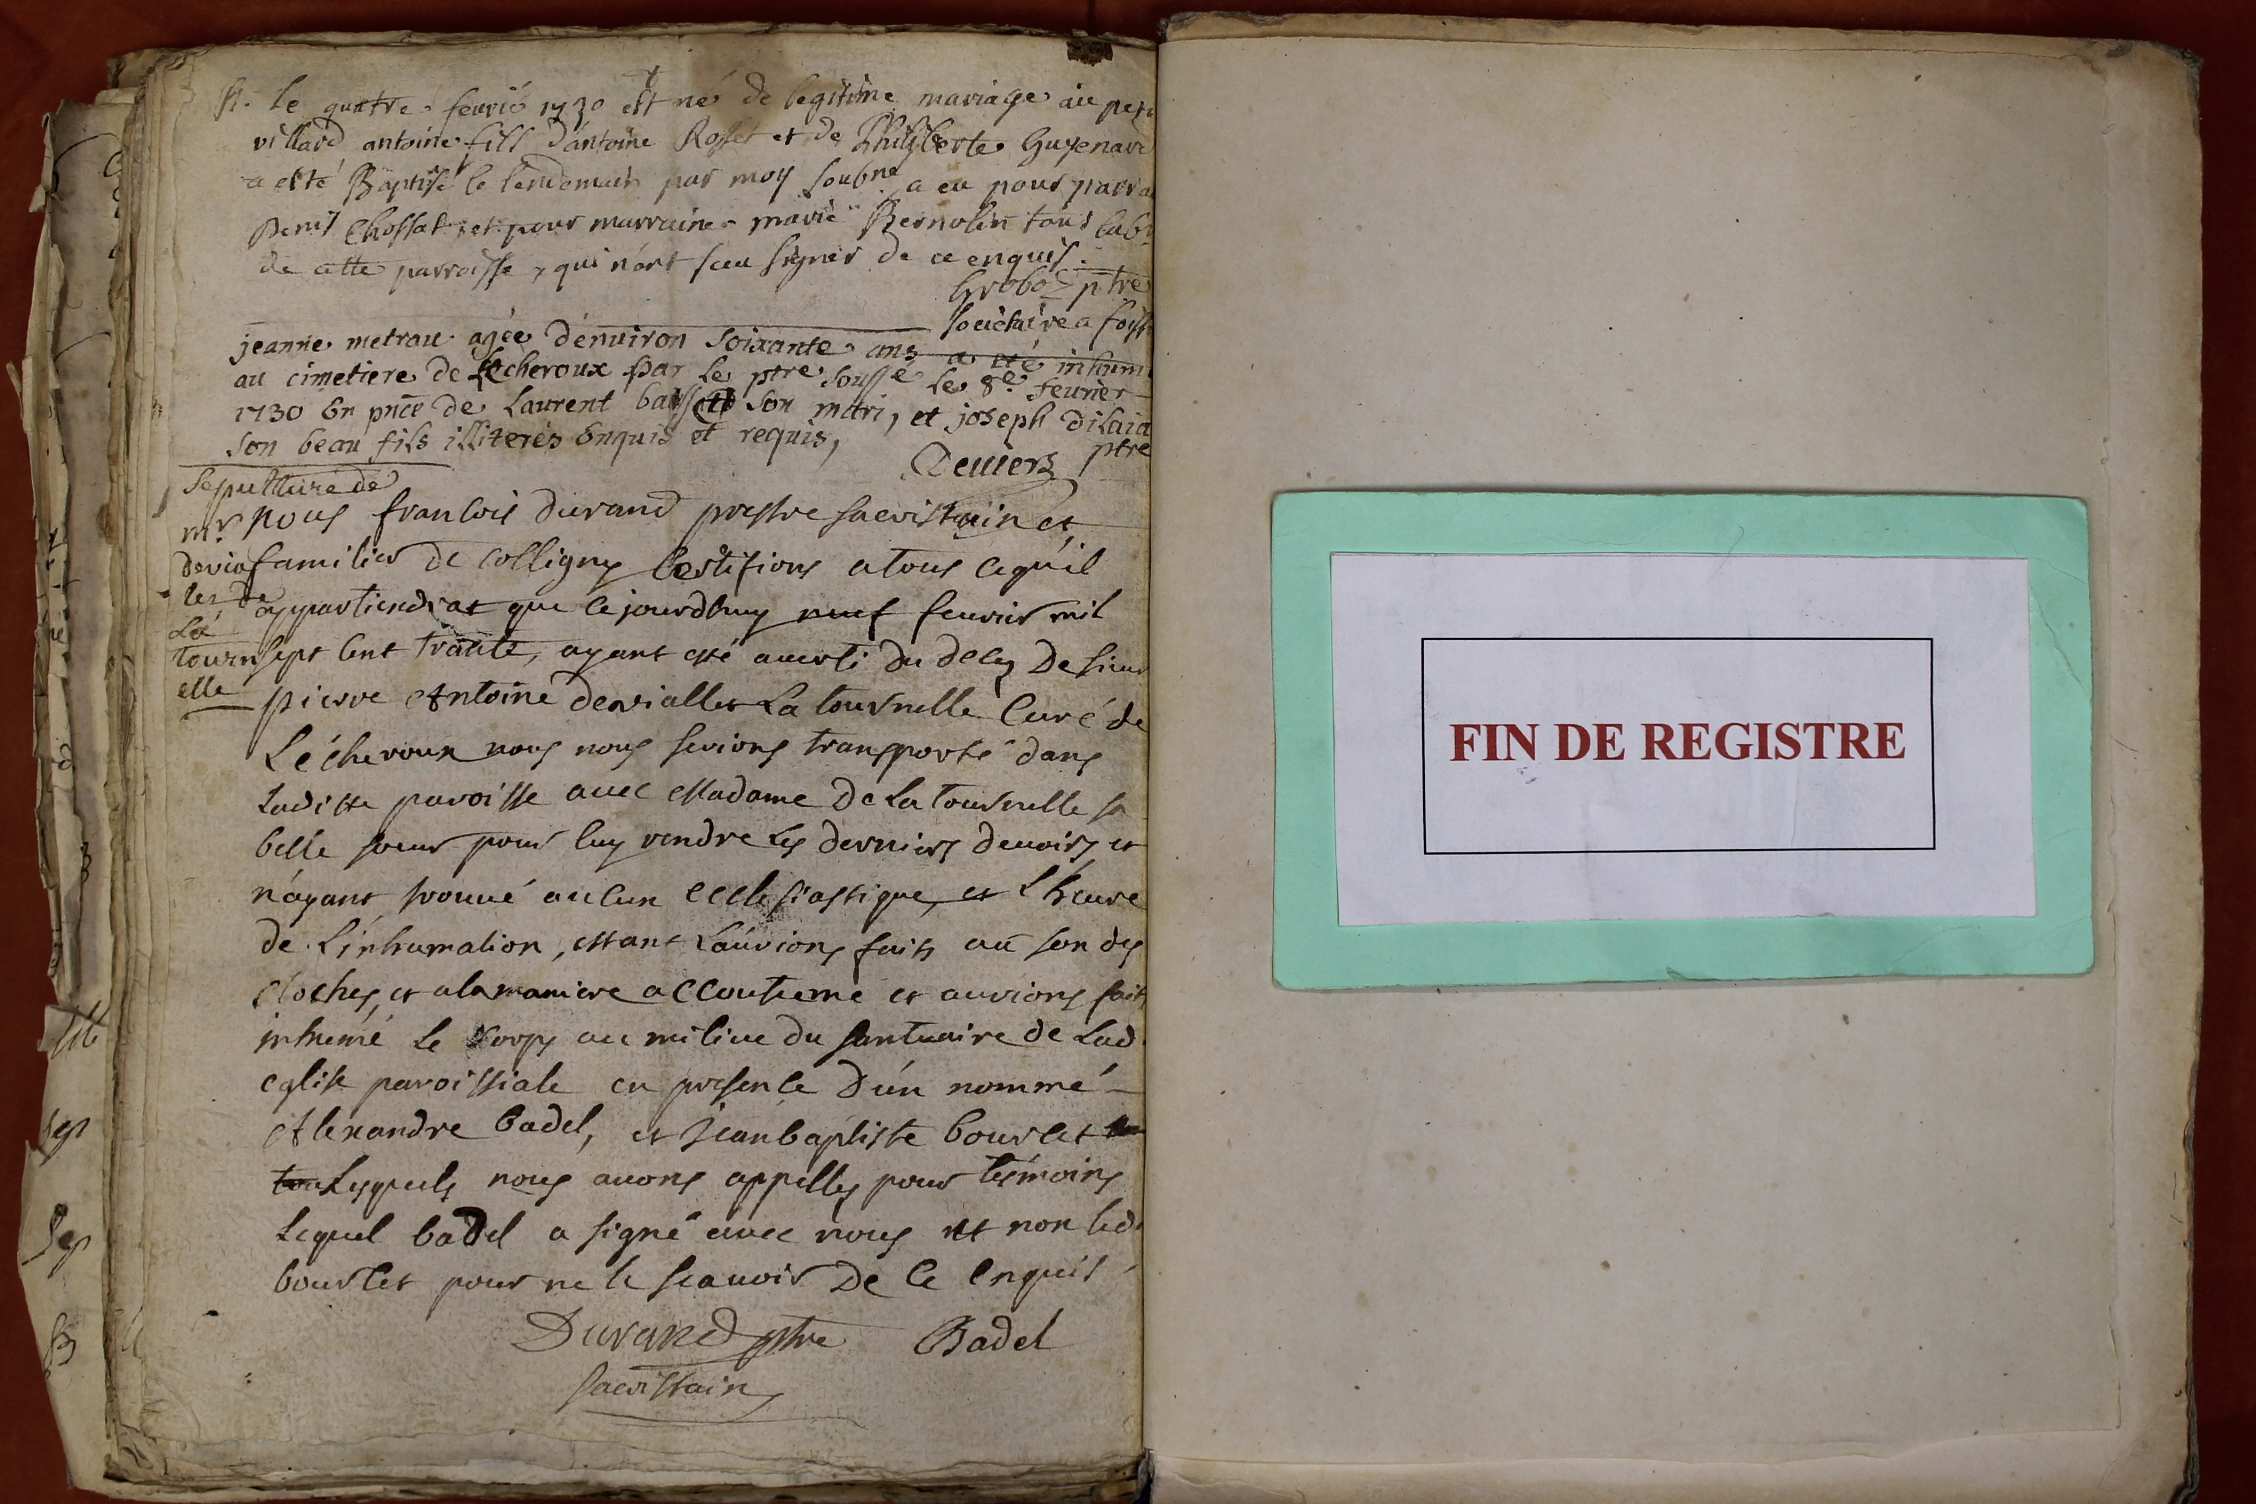 B. le quatre feurié 1730 est né de legitime mariage au peti
villard antoine fill d'antoine Rosset et de Philiberte Guyenard
a esté Baptisé le lendemain par moy soubné a eu pour parra
Denis Chossat et pour marraine marie Bernolin tous lab
de cette parroisse, qui n'ont sceu signer de ce enquis.
Groboz ptre
a foiss
jeanne metrau agée d'enuiron soixante ans a eté inhum
au cimetiere de Lecheroux par le ptre soussé le 8e feurier
1730 en pnce de Laurent son mari, et joseph
son beau fils illiterés enquis et requis,
Deuiers ptre
Sepulture de
mr
devial
let de
La
tourn
elle
nous francois durand prestre sacristain et
familier de colligny Certifions a tous ce qu'il
appartiendrat que ce jourdhuy neuf feurier mil
sept cent trante, ayant esté auerti du deces De sieur
pierre Antoine deviallet La tournelle Curé de
Lécheroux nous nous serions transporté dans
Laditte paroisse auec Madame De La Tournelle sa
belle soeur pour luy rendre les derniers deuoirs et
n'ayant trouué aucun ecclesiastique, et L'heure
de L'inhumation, estant L'aurions faits au son des
cloches, et a la maniere accoutumé et aurions fait
inhumé le corps au milieu du santuaire de Lad.
eglise paroissiale en presence d'ún nommé
Alexandre badel, et Jean baptiste bourcet
Lesquels nous auons appellés pour tesmoins
Lequel badel a signé auec nous et non led.
bourcet pour ne le scauoir De Ce Enquis
Durand ptre Badel
sacristain
FIN DE REGISTRE